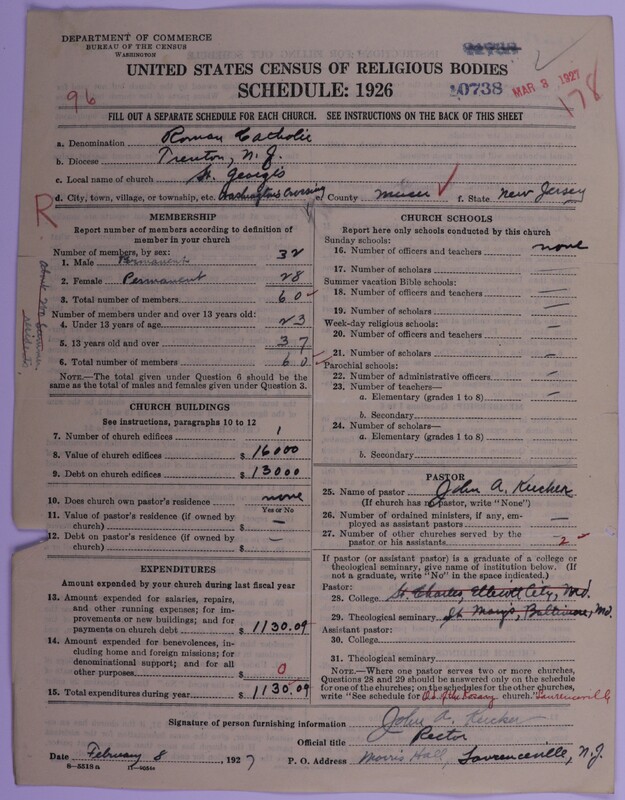 DEPARTMENT OF COMMERCE
BUREAU OF THE CENSUS
WASHINGTON
UNITED STATES CENSUS OF RELIGIOUS BODIES
SCHEDULE: 1926
96
10738
MAR 3 1927
178
FILL OUT A SEPARATE SCHEDULE FOR EACH CHURCH. SEE INSTRUCTIONS ON THE BACK OF THIS SHEET
a. Denomination Roman Catholic
b. Diocese Trenton, N. J.
c. Local name of church St. Georges
d. City, town, village, or township, etc. Washingtons Crossing e. County Mercer f. State New Jersey
R
MEMBERSHIP
Report number of members according to definition of
member in your church
Number of members, by sex:
1. Male Permanent 32
2. Female Permanent 28
3. Total number of members 60
Number of members under and over 13 years old:
4. Under 13 years of age 23
5. 13 years old and over 37
6. Total number of members 60
NOTE.—The total given under Question 6 should be the
same as the total of males and females given under Question 3.
CHURCH BUILDINGS
See instructions, paragraphs 10 to 12
7. Number of church edifices 1
8. Value of church edifices $ 16000
9. Debt on church edifices $ 13000
10. Does church own pastor's residence none
Yes or No
11. Value of pastor's residence (if owned by
church) $ —
12. Debt on pastor's residence (if owned by
church) $ —
EXPENDITURES
Amount expended by your church during last fiscal year
13. Amount expended for salaries, repairs,
and other running expenses; for im-
provements or new buildings; and for
payments on church debt $ 1130.09
14. Amount expended for benevolences,
including home and foreign missions; for
denominational support; and for all
other purposes $ 0
15. Total expenditures during year $ 1130.09
CHURCH SCHOOLS
Report here only schools conducted by this church
Sunday schools:
16. Number of officers and teachers none
17. Number of scholars —
Summer vacation Bible schools:
18. Number of officers and teachers —
19. Number of scholars —
Week-day religious schools:
20. Number of officers and teachers —
21. Number of scholars —
Parochial schools:
22. Number of administrative officers —
23. Number of teachers—
a. Elementary (grades 1 to 8) —
b. Secondary
24. Number of scholars—
a. Elementary (grades 1 to 8)
b. Secondary
PASTOR
25. Name of pastor John A. Kucker
(If church has no pastor, write "None")
26. Number of ordained ministers, if any, em-
ployed as assistant pastors —
27. Number of other churches served by the
pastor or his assistants 2
If pastor (or assistant pastor) is a graduate of a college or
theological seminary, give name of institution below. (If
not a graduate, write "No" in the space indicated.)
Pastor:
28. College St Charles, Ellicott City, Md.
29. Theological seminary St. Mary's, Baltimore, Md.
Assistant pastor:
30. College
31. Theological seminary
NOTE.—Where one pastor serves two or more churches,
Questions 28 and 29 should be answered only on the schedule
for one of the churches; on the schedules for the other churches,
write "See schedule for church." Lawrenceville
Signature of person furnishing information John A. Kucker
Official title Rector
Date February 8, 1927 P. O. Address Morris Hall, Lawrenceville, N. J.
8-5519 a